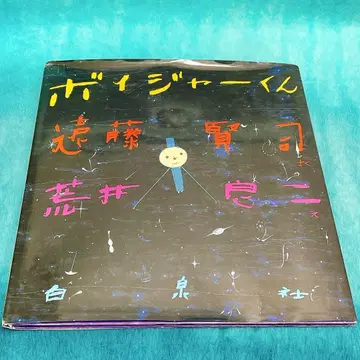 ボイジャーくん
遠藤賢司 文
荒井良二 え
白泉社